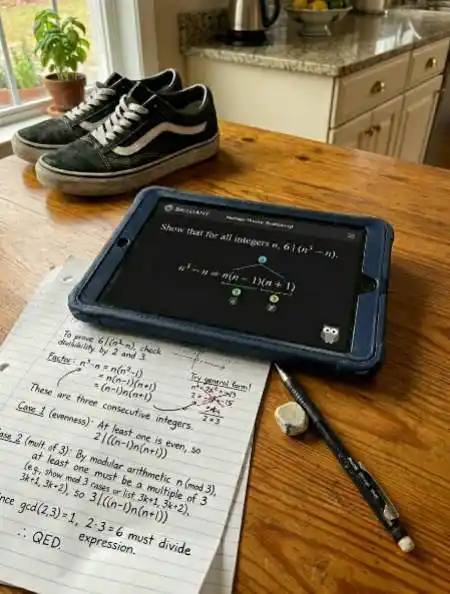 BRILLIANT
Show that for all integers n, 6 | (n³ − n).
n³ − n = n(n − 1)(n + 1)
To prove 6|(n³-n), check
divisibility by 2 and 3
Factor: n³-n = n(n²-1)
= n(n-1)(n+1)
= (n-1)n(n+1)
These are three consecutive integers.
Try general form!
Case 1 (evenness): At least one is even, so
2|((n-1)n(n+1))
ase 2 (mult. of 3): By modular arithmetic n (mod 3),
at least one must be a multiple of 3
(e.g., show mod 3 cases or list 3k+1, 3k+2),
3k+1, 3k+2), so 3|((n-1)n(n+1))
ince gcd(2,3)=1, 2·3=6 must divide
expression.
∴ QED.